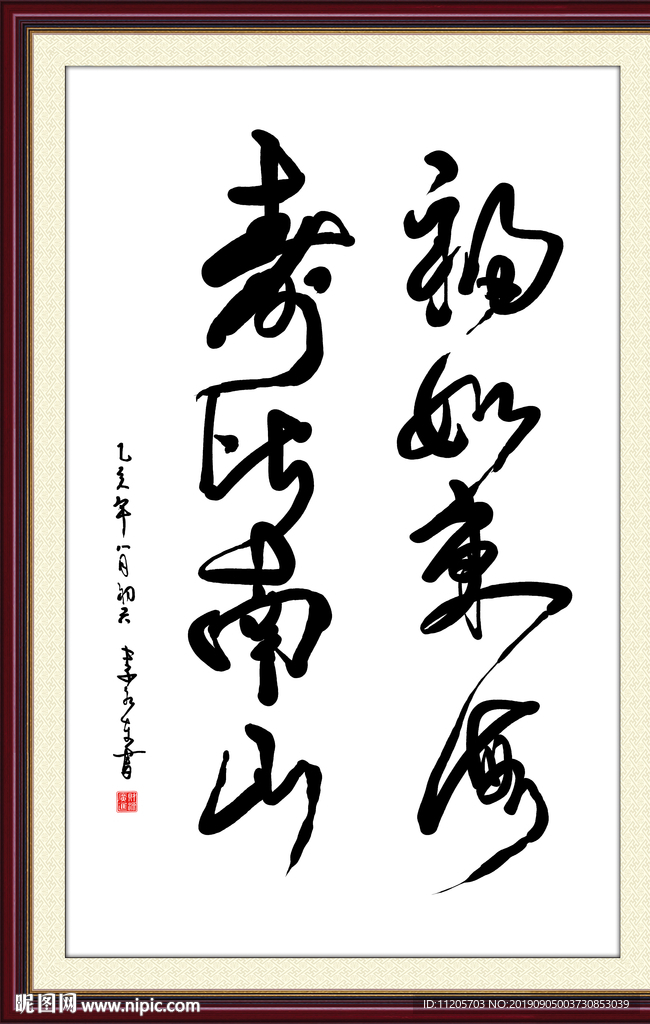 福如東海
壽比南山
乙亥年八月初六 李永東書
昵图网 www.nipic.com
ID:11205703 NO:20190905003730853039